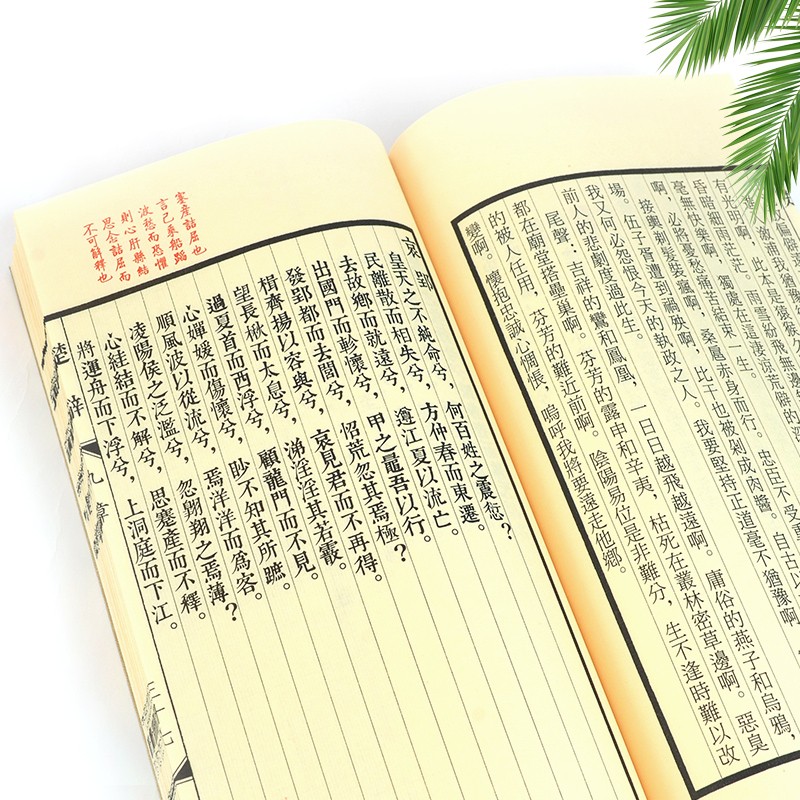 有光明啊，此本是猿猴
昏暗細雨茫茫。雨雪紛飛無邊
毫無快樂啊，獨處在這淒涼荒僻的深
啊，必將憂愁痛苦結束一生。
接輿剃髮裝瘋啊，桑扈赤身而行。忠臣不受
場。伍子胥遭到禍殃啊，比干也被剁成肉醬。自古以
我又何必怨恨今天的執政之人。我要堅持正道毫不猶豫啊，
前人的悲劇度過此生。
尾聲：吉祥的鸞和鳳凰，一日日越飛越遠啊。庸俗的燕子和烏鴉，
都在廟堂搭壘巢啊。芬芳的露申和辛夷，枯死在叢林密草邊啊。惡臭
的被人任用，芬芳的難近前啊。陰陽易位是非難分，生不逢時難以改
變啊。懷抱忠誠心惆悵，嗚呼我將要遠走他鄉。
蹇產詰屈也
言己乘船蹈
波愁而恐懼
則心肝縣結
思念詰屈而
不可解釋也
哀郢
皇天之不純命兮，何百姓之震愆？
民離散而相失兮，方仲春而東遷。
去故鄉而就遠兮，遵江夏以流亡。
出國門而軫懷兮，甲之鼂吾以行。
發郢都而去閭兮，怊荒忽其焉極？
楫齊揚以容與兮，哀見君而不再得。
望長楸而太息兮，涕淫淫其若霰。
過夏首而西浮兮，顧龍門而不見。
心嬋媛而傷懷兮，眇不知其所蹠。
順風波以從流兮，焉洋洋而爲客。
凌陽侯之泛濫兮，忽翱翔之焉薄？
心絓結而不解兮，思蹇產而不釋。
將運舟而下浮兮，上洞庭而下江。
楚辭
九章
三十九